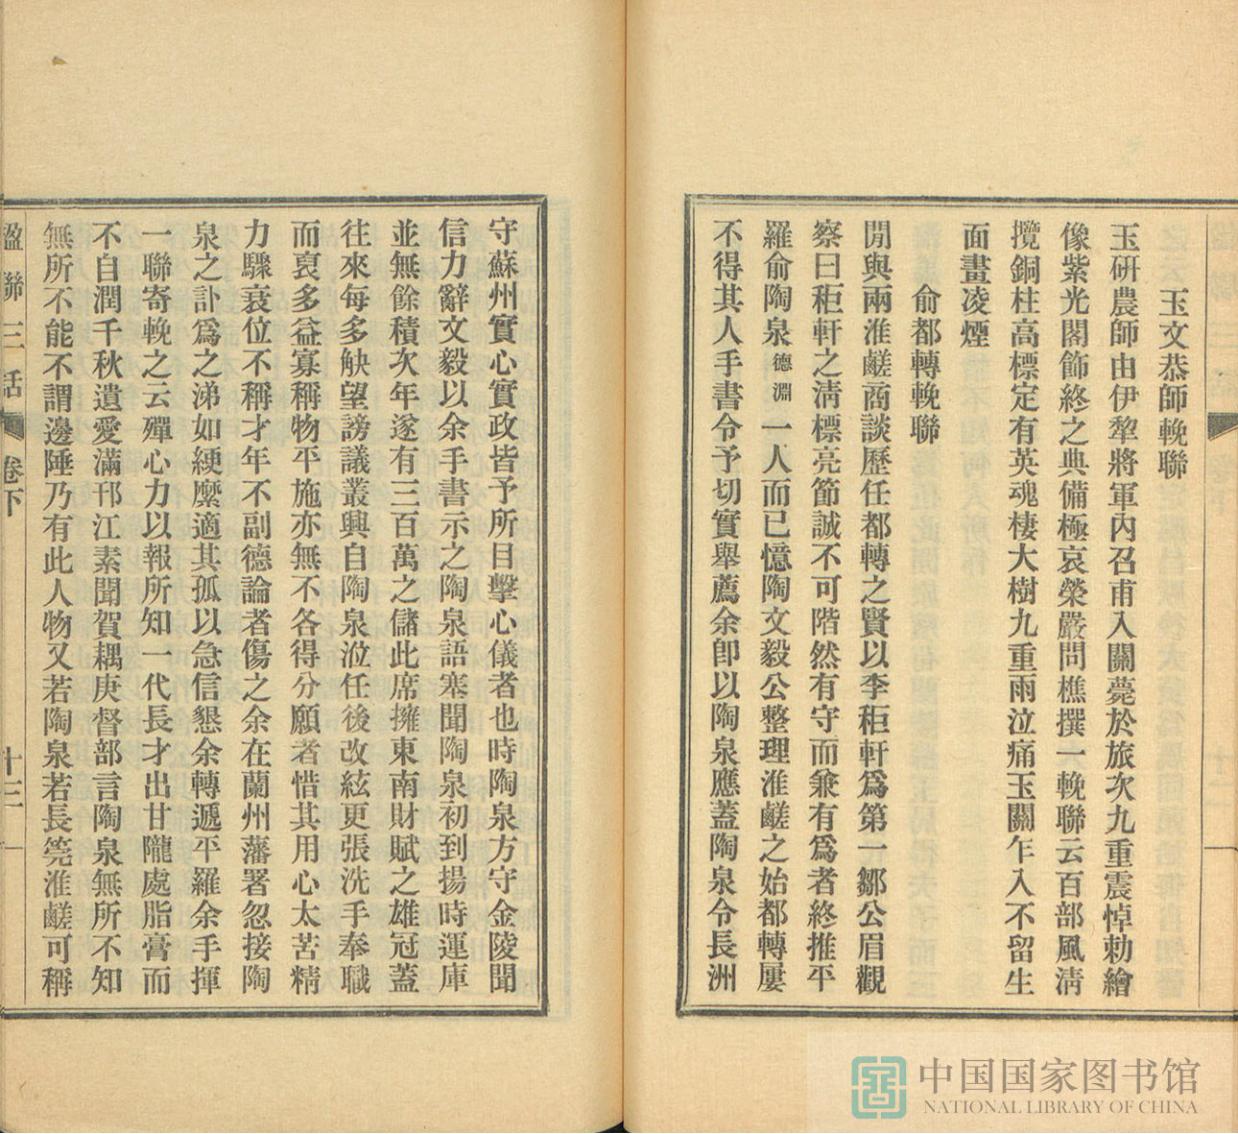 玉文恭師輓聯
玉研農師由伊犂將軍內召甫入關薨於旅次九重震悼勅繪
像紫光閣飾終之典備極哀榮嚴問樵撰一輓聯云百部風淸
攬銅柱高標定有英魂棲大樹九重雨泣痛玉關乍入不留生
面畫凌煙
俞都轉輓聯
閒與兩淮鹺商談歷任都轉之賢以李秬軒爲第一鄒公眉觀
察曰秬軒之淸標亮節誠不可階然有守而兼有爲者終推平
羅俞陶泉德淵一人而已憶陶文毅公整理淮鹺之始都轉屢
不得其人手書令予切實舉薦余卽以陶泉應蓋陶泉令長洲
守蘇州實心實政皆予所目擊心儀者也時陶泉方守金陵聞
信力辭文毅以余手書示之陶泉語塞聞陶泉初到揚時運庫
並無餘積次年遂有三百萬之儲此席擁東南財賦之雄冠蓋
往來每多觖望謗議叢興自陶泉涖任後改絃更張洗手奉職
而裒多益寡稱物平施亦無不各得分願者惜其用心太苦精
力驟衰位不稱才年不副德論者傷之余在蘭州藩署忽接陶
泉之訃爲之涕如綆縻適其孤以急信懇余轉遞平羅余手揮
一聯寄輓之云殫心力以報所知一代長才出甘隴處脂膏而
不自潤千秋遺愛滿邗江素聞賀耦庚督部言陶泉無所不知
無所不能不謂邊陲乃有此人物又若陶泉若長筦淮鹺可稱
楹聯三話 卷下 十三
中国国家图书馆
NATIONAL LIBRARY OF CHINA